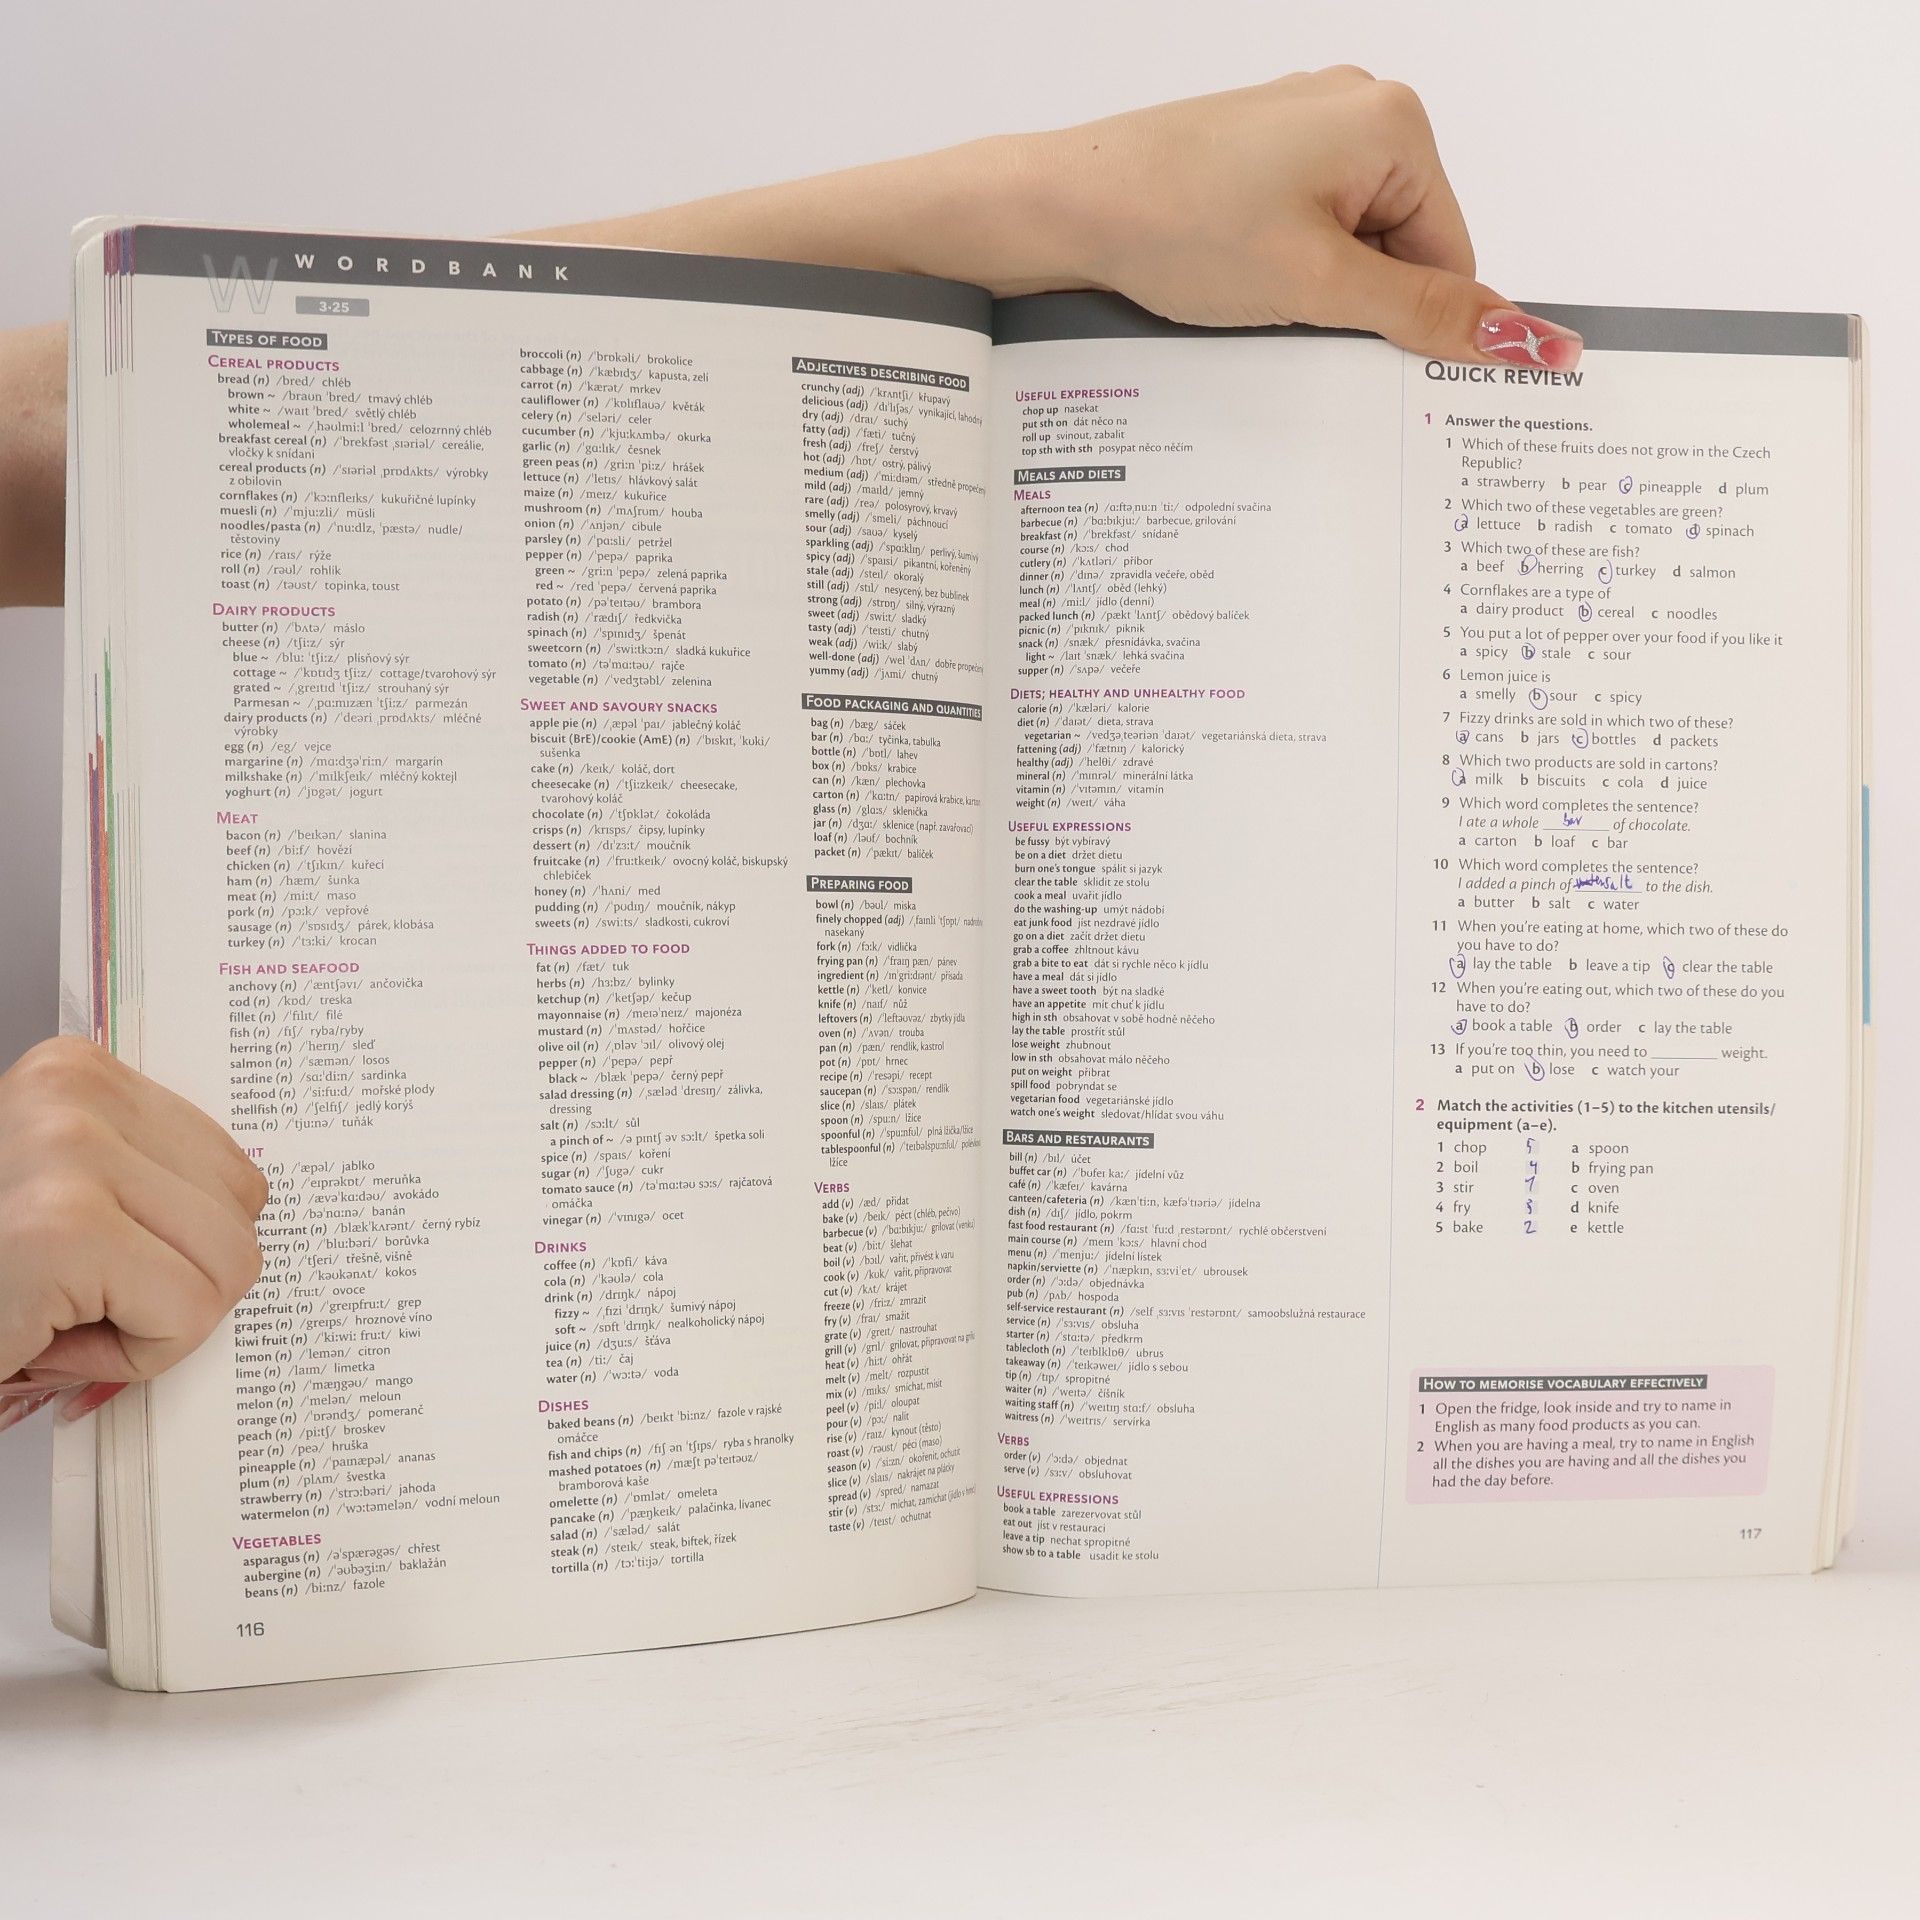 WORDBANK
3-25
TYPES OF FOOD
CEREAL PRODUCTS
bread (n) /bred/ chléb
brown ~ /braʊn ˈbred/ tmavý chléb
white ~ /waɪt ˈbred/ světlý chléb
wholemeal ~ /ˌhəʊlmiːl ˈbred/ celozrnný chléb
breakfast cereal (n) /ˈbrekfəst ˌsɪəriəl/ cereálie,
vločky k snídani
cereal products (n) /ˈsɪəriəl ˌprɒdʌkts/ výrobky
z obilovin
cornflakes (n) /ˈkɔːnfleɪks/ kukuřičné lupínky
muesli (n) /ˈmjuːzli/ müsli
noodles/pasta (n) /ˈnuːdlz, ˈpæstə/ nudle/
těstoviny
rice (n) /raɪs/ rýže
roll (n) /rəʊl/ rohlík
toast (n) /təʊst/ topinka, toust
DAIRY PRODUCTS
butter (n) /ˈbʌtə/ máslo
cheese (n) /tʃiːz/ sýr
blue ~ /bluː ˈtʃiːz/ plísňový sýr
cottage ~ /ˈkɒtɪdʒ tʃiːz/ cottage/tvarohový sýr
grated ~ /ˌgreɪtɪd ˈtʃiːz/ strouhaný sýr
Parmesan ~ /ˌpɑːmɪzæn ˈtʃiːz/ parmezán
dairy products (n) /ˈdeəri ˌprɒdʌkts/ mléčné
výrobky
egg (n) /eg/ vejce
margarine (n) /mɑːdʒəˈriːn/ margarín
milkshake (n) /ˈmɪlkʃeɪk/ mléčný koktejl
yoghurt (n) /ˈjɒgət/ jogurt
MEAT
bacon (n) /ˈbeɪkən/ slanina
beef (n) /biːf/ hovězí
chicken (n) /ˈtʃɪkɪn/ kuřecí
ham (n) /hæm/ šunka
meat (n) /miːt/ maso
pork (n) /pɔːk/ vepřové
sausage (n) /ˈsɒsɪdʒ/ párek, klobása
turkey (n) /ˈtɜːki/ krocan
FISH AND SEAFOOD
anchovy (n) /ˈæntʃəvɪ/ ančovička
cod (n) /kɒd/ treska
fillet (n) /ˈfɪlɪt/ filé
fish (n) /fɪʃ/ ryba/ryby
herring (n) /ˈherɪŋ/ sleď
salmon (n) /ˈsæmən/ losos
sardine (n) /sɑːˈdiːn/ sardinka
seafood (n) /ˈsiːfuːd/ mořské plody
shellfish (n) /ˈʃelfɪʃ/ jedlý korýš
tuna (n) /ˈtjuːnə/ tuňák
UIT
(n) /ˈæpəl/ jablko
(n) /ˈeɪprəkɒt/ meruňka
do (n) /ævəˈkɑːdəʊ/ avokádo
ana (n) /bəˈnɑːnə/ banán
kcurrant (n) /blækˈkʌrənt/ černý rybíz
berry (n) /ˈbluːbəri/ borůvka
y (n) /ˈtʃeri/ třešně, višně
onut (n) /ˈkəʊkənʌt/ kokos
uit (n) /fruːt/ ovoce
grapefruit (n) /ˈgreɪpfruːt/ grep
grapes (n) /greɪps/ hroznové víno
kiwi fruit (n) /ˈkiːwiː fruːt/ kiwi
lemon (n) /ˈlemən/ citron
lime (n) /laɪm/ limetka
mango (n) /ˈmæŋgəʊ/ mango
melon (n) /ˈmelən/ meloun
orange (n) /ˈɒrəndʒ/ pomeranč
peach (n) /piːtʃ/ broskev
pear (n) /peə/ hruška
pineapple (n) /ˈpaɪnæpəl/ ananas
plum (n) /plʌm/ švestka
strawberry (n) /ˈstrɔːbəri/ jahoda
watermelon (n) /ˈwɔːtəmelən/ vodní meloun
VEGETABLES
asparagus (n) /əˈspærəgəs/ chřest
aubergine (n) /ˈəʊbəʒiːn/ baklažán
beans (n) /biːnz/ fazole
116
broccoli (n) /ˈbrɒkəli/ brokolice
cabbage (n) /ˈkæbɪdʒ/ kapusta, zelí
carrot (n) /ˈkærət/ mrkev
cauliflower (n) /ˈkɒlɪflaʊə/ květák
celery (n) /ˈseləri/ celer
cucumber (n) /ˈkjuːkʌmbə/ okurka
garlic (n) /ˈgɑːlɪk/ česnek
green peas (n) /griːn ˈpiːz/ hrášek
lettuce (n) /ˈletɪs/ hlávkový salát
maize (n) /meɪz/ kukuřice
mushroom (n) /ˈmʌʃrʊm/ houba
onion (n) /ˈʌnjən/ cibule
parsley (n) /ˈpɑːsli/ petržel
pepper (n) /ˈpepə/ paprika
green ~ /griːn ˈpepə/ zelená paprika
red ~ /red ˈpepə/ červená paprika
potato (n) /pəˈteɪtəʊ/ brambora
radish (n) /ˈrædɪʃ/ ředkvička
spinach (n) /ˈspɪnɪdʒ/ špenát
sweetcorn (n) /ˈswiːtkɔːn/ sladká kukuřice
tomato (n) /təˈmɑːtəʊ/ rajče
vegetable (n) /ˈvedʒtəbl/ zelenina
SWEET AND SAVOURY SNACKS
apple pie (n) /ˌæpəl ˈpaɪ/ jablečný koláč
biscuit (BrE)/cookie (AmE) (n) /ˈbɪskɪt, ˈkʊki/
sušenka
cake (n) /keɪk/ koláč, dort
cheesecake (n) /ˈtʃiːzkeɪk/ cheesecake,
tvarohový koláč
chocolate (n) /ˈtʃɒklət/ čokoláda
crisps (n) /krɪsps/ čipsy, lupínky
dessert (n) /dɪˈzɜːt/ moučník
fruitcake (n) /ˈfruːtkeɪk/ ovocný koláč, biskupský
chlebíček
honey (n) /ˈhʌni/ med
pudding (n) /ˈpʊdɪŋ/ moučník, nákyp
sweets (n) /swiːts/ sladkosti, cukroví
THINGS ADDED TO FOOD
fat (n) /fæt/ tuk
herbs (n) /hɜːbz/ bylinky
ketchup (n) /ˈketʃəp/ kečup
mayonnaise (n) /meɪəˈneɪz/ majonéza
mustard (n) /ˈmʌstəd/ hořčice
olive oil (n) /ˌɒləv ˈɔɪl/ olivový olej
pepper (n) /ˈpepə/ pepř
black ~ /blæk ˈpepə/ černý pepř
salad dressing (n) /ˌsæləd ˈdresɪŋ/ zálivka,
dressing
salt (n) /sɔːlt/ sůl
a pinch of ~ /ə pɪntʃ əv sɔːlt/ špetka soli
spice (n) /spaɪs/ koření
sugar (n) /ˈʃʊgə/ cukr
tomato sauce (n) /təˈmɑːtəʊ sɔːs/ rajčatová
omáčka
vinegar (n) /ˈvɪnɪgə/ ocet
DRINKS
coffee (n) /ˈkɒfi/ káva
cola (n) /ˈkəʊlə/ cola
drink (n) /drɪŋk/ nápoj
fizzy ~ /ˌfɪzi ˈdrɪŋk/ šumivý nápoj
soft ~ /sɒft ˈdrɪŋk/ nealkoholický nápoj
juice (n) /dʒuːs/ šťáva
tea (n) /tiː/ čaj
water (n) /ˈwɔːtə/ voda
DISHES
baked beans (n) /beɪkt ˈbiːnz/ fazole v rajské
omáčce
fish and chips (n) /fɪʃ ən ˈtʃɪps/ ryba s hranolky
mashed potatoes (n) /mæʃt pəˈteɪtəʊz/
bramborová kaše
omelette (n) /ˈɒmlət/ omeleta
pancake (n) /ˈpæŋkeɪk/ palačinka, lívanec
salad (n) /ˈsæləd/ salát
steak (n) /steɪk/ steak, biftek, řízek
tortilla (n) /tɔːˈtiːjə/ tortilla
ADJECTIVES DESCRIBING FOOD
crunchy (adj) /ˈkrʌntʃi/ křupavý
delicious (adj) /dɪˈlɪʃəs/ vynikající, lahodný
dry (adj) /draɪ/ suchý
fatty (adj) /ˈfæti/ tučný
fresh (adj) /freʃ/ čerstvý
hot (adj) /hɒt/ ostrý, pálivý
medium (adj) /ˈmiːdiəm/ středně
mild (adj) /maɪld/ jemný
rare (adj) /reə/ polosyrový, krvavý
smelly (adj) /ˈsmeli/ páchnoucí
sour (adj) /saʊə/ kyselý
sparkling (adj) /ˈspɑːklɪŋ/ perlivý, šumivý
spicy (adj) /ˈspaɪsi/ pikantní, kořeněný
stale (adj) /steɪl/ okoralý
still (adj) /stɪl/ nesycený, bez bublinek
strong (adj) /strɒŋ/ silný, výrazný
sweet (adj) /swiːt/ sladký
tasty (adj) /ˈteɪsti/ chutný
weak (adj) /wiːk/ slabý
well-done (adj) /wel ˈdʌn/ dobře
yummy (adj) /ˈjʌmi/ chutný
FOOD PACKAGING AND QUANTITIES
bag (n) /bæg/ sáček
bar (n) /bɑː/ tyčinka, tabulka
bottle (n) /ˈbɒtl/ lahev
box (n) /bɒks/ krabice
can (n) /kæn/ plechovka
carton (n) /ˈkɑːtn/ papírová krabice, karton
glass (n) /glɑːs/ sklenička
jar (n) /dʒɑː/ sklenice (např. zavařovací)
loaf (n) /ləʊf/ bochník
packet (n) /ˈpækɪt/ balíček
PREPARING FOOD
bowl (n) /bəʊl/ miska
finely chopped (adj) /ˌfaɪnli ˈtʃɒpt/
nasekaný
fork (n) /fɔːk/ vidlička
frying pan (n) /ˈfraɪɪŋ pæn/ pánev
ingredient (n) /ɪnˈgriːdiənt/ přísada
kettle (n) /ˈketl/ konvice
knife (n) /naɪf/ nůž
leftovers (n) /ˈleftəʊvəz/ zbytky jídla
oven (n) /ˈʌvən/ trouba
pan (n) /pæn/ rendlík, kastrol
pot (n) /pɒt/ hrnec
recipe (n) /ˈresəpi/ recept
saucepan (n) /ˈsɔːspən/ rendlík
slice (n) /slaɪs/ plátek
spoon (n) /spuːn/ lžíce
spoonful (n) /ˈspuːnfʊl/ plná lžička/lžíce
tablespoonful (n) /ˈteɪbəlspuːnfʊl/
lžíce
VERBS
add (v) /æd/ přidat
bake (v) /beɪk/ péct (chléb, pečivo)
barbecue (v) /ˈbɑːbɪkjuː/ grilovat (venku)
beat (v) /biːt/ šlehat
boil (v) /bɔɪl/ vařit, přivést k varu
cook (v) /kʊk/ vařit, připravovat
cut (v) /kʌt/ krájet
freeze (v) /friːz/ zmrazit
fry (v) /fraɪ/ smažit
grate (v) /greɪt/ nastrouhat
grill (v) /grɪl/ grilovat, připravovat na grilu
heat (v) /hiːt/ ohřát
melt (v) /melt/ rozpustit
mix (v) /mɪks/ smíchat, mísit
peel (v) /piːl/ oloupat
pour (v) /pɔː/ nalít
rise (v) /raɪz/ kynout (těsto)
roast (v) /rəʊst/ péci (maso)
season (v) /ˈsiːzn/ okořenit, ochutit
slice (v) /slaɪs/ nakrájet na plátky
spread (v) /spred/ namazat
stir (v) /stɜː/ míchat, zamíchat (jídlo v hrnci)
taste (v) /teɪst/ ochutnat
USEFUL EXPRESSIONS
chop up nasekat
put sth on dát něco na
roll up svinout, zabalit
top sth with sth posypat něco něčím
MEALS AND DIETS
MEALS
afternoon tea (n) /ɑːftəˌnuːn ˈtiː/ odpolední svačina
barbecue (n) /ˈbɑːbɪkjuː/ barbecue, grilování
breakfast (n) /ˈbrekfəst/ snídaně
course (n) /kɔːs/ chod
cutlery (n) /ˈkʌtləri/ příbor
dinner (n) /ˈdɪnə/ zpravidla večeře, oběd
lunch (n) /ˈlʌntʃ/ oběd (lehký)
meal (n) /miːl/ jídlo (denní)
packed lunch (n) /pækt ˈlʌntʃ/ obědový balíček
picnic (n) /ˈpɪknɪk/ piknik
snack (n) /snæk/ přesnídávka, svačina
light ~ /laɪt ˈsnæk/ lehká svačina
supper (n) /ˈsʌpə/ večeře
DIETS; HEALTHY AND UNHEALTHY FOOD
calorie (n) /ˈkæləri/ kalorie
diet (n) /ˈdaɪət/ dieta, strava
vegetarian ~ /vedʒəˌteəriən ˈdaɪət/ vegetariánská dieta, strava
fattening (adj) /ˈfætnɪŋ/ kalorický
healthy (adj) /ˈhelθi/ zdravé
mineral (n) /ˈmɪnrəl/ minerální látka
vitamin (n) /ˈvɪtəmɪn/ vitamín
weight (n) /weɪt/ váha
USEFUL EXPRESSIONS
be fussy být vybíravý
be on a diet držet dietu
burn one's tongue spálit si jazyk
clear the table sklidit ze stolu
cook a meal uvařit jídlo
do the washing-up umýt nádobí
eat junk food jíst nezdravé jídlo
go on a diet začít držet dietu
grab a coffee zhltnout kávu
grab a bite to eat dát si rychle něco k jídlu
have a meal dát si jídlo
have a sweet tooth být na sladké
have an appetite mít chuť k jídlu
high in sth obsahovat v sobě hodně něčeho
lay the table prostřít stůl
lose weight zhubnout
low in sth obsahovat málo něčeho
put on weight přibrat
spill food pobryndat se
vegetarian food vegetariánské jídlo
watch one's weight sledovat/hlídat svou váhu
BARS AND RESTAURANTS
bill (n) /bɪl/ účet
buffet car (n) /ˈbʊfeɪ kɑː/ jídelní vůz
café (n) /ˈkæfeɪ/ kavárna
canteen/cafeteria (n) /kænˈtiːn, kæfəˈtɪəriə/ jídelna
dish (n) /dɪʃ/ jídlo, pokrm
fast food restaurant (n) /fɑːst ˈfuːd ˌrestərɒnt/ rychlé občerstvení
main course (n) /meɪn ˈkɔːs/ hlavní chod
menu (n) /ˈmenjuː/ jídelní lístek
napkin/serviette (n) /ˈnæpkɪn, sɜːviˈet/ ubrousek
order (n) /ˈɔːdə/ objednávka
pub (n) /pʌb/ hospoda
self-service restaurant (n) /self ˌsɜːvɪs ˈrestərɒnt/ samoobslužná restaurace
service (n) /ˈsɜːvɪs/ obsluha
starter (n) /ˈstɑːtə/ předkrm
tablecloth (n) /ˈteɪblklɒθ/ ubrus
takeaway (n) /ˈteɪkəweɪ/ jídlo s sebou
tip (n) /tɪp/ spropitné
waiter (n) /ˈweɪtə/ číšník
waiting staff (n) /ˈweɪtɪŋ stɑːf/ obsluha
waitress (n) /ˈweɪtrɪs/ servírka
VERBS
order (v) /ˈɔːdə/ objednat
serve (v) /sɜːv/ obsluhovat
USEFUL EXPRESSIONS
book a table zarezervovat stůl
eat out jíst v restauraci
leave a tip nechat spropitné
show sb to a table usadit ke stolu
QUICK REVIEW
1 Answer the questions.
1 Which of these fruits does not grow in the Czech
Republic?
a strawberry b pear c pineapple d plum
2 Which two of these vegetables are green?
a lettuce b radish c tomato d spinach
3 Which two of these are fish?
a beef b herring c turkey d salmon
4 Cornflakes are a type of
a dairy product b cereal c noodles
5 You put a lot of pepper over your food if you like it
a spicy b stale c sour
6 Lemon juice is
a smelly b sour c spicy
7 Fizzy drinks are sold in which two of these?
a cans b jars c bottles d packets
8 Which two products are sold in cartons?
a milk b biscuits c cola d juice
9 Which word completes the sentence?
I ate a whole bar of chocolate.
a carton b loaf c bar
10 Which word completes the sentence?
I added a pinch of salt to the dish.
a butter b salt c water
11 When you're eating at home, which two of these do
you have to do?
a lay the table b leave a tip c clear the table
12 When you're eating out, which two of these do you
have to do?
a book a table b order c lay the table
13 If you're too thin, you need to ________ weight.
a put on b lose c watch your
2 Match the activities (1–5) to the kitchen utensils/
equipment (a–e).
1 chop 5 a spoon
2 boil 4 b frying pan
3 stir 1 c oven
4 fry 3 d knife
5 bake 2 e kettle
HOW TO MEMORISE VOCABULARY EFFECTIVELY
1 Open the fridge, look inside and try to name in
English as many food products as you can.
2 When you are having a meal, try to name in English
all the dishes you are having and all the dishes you
had the day before.
117